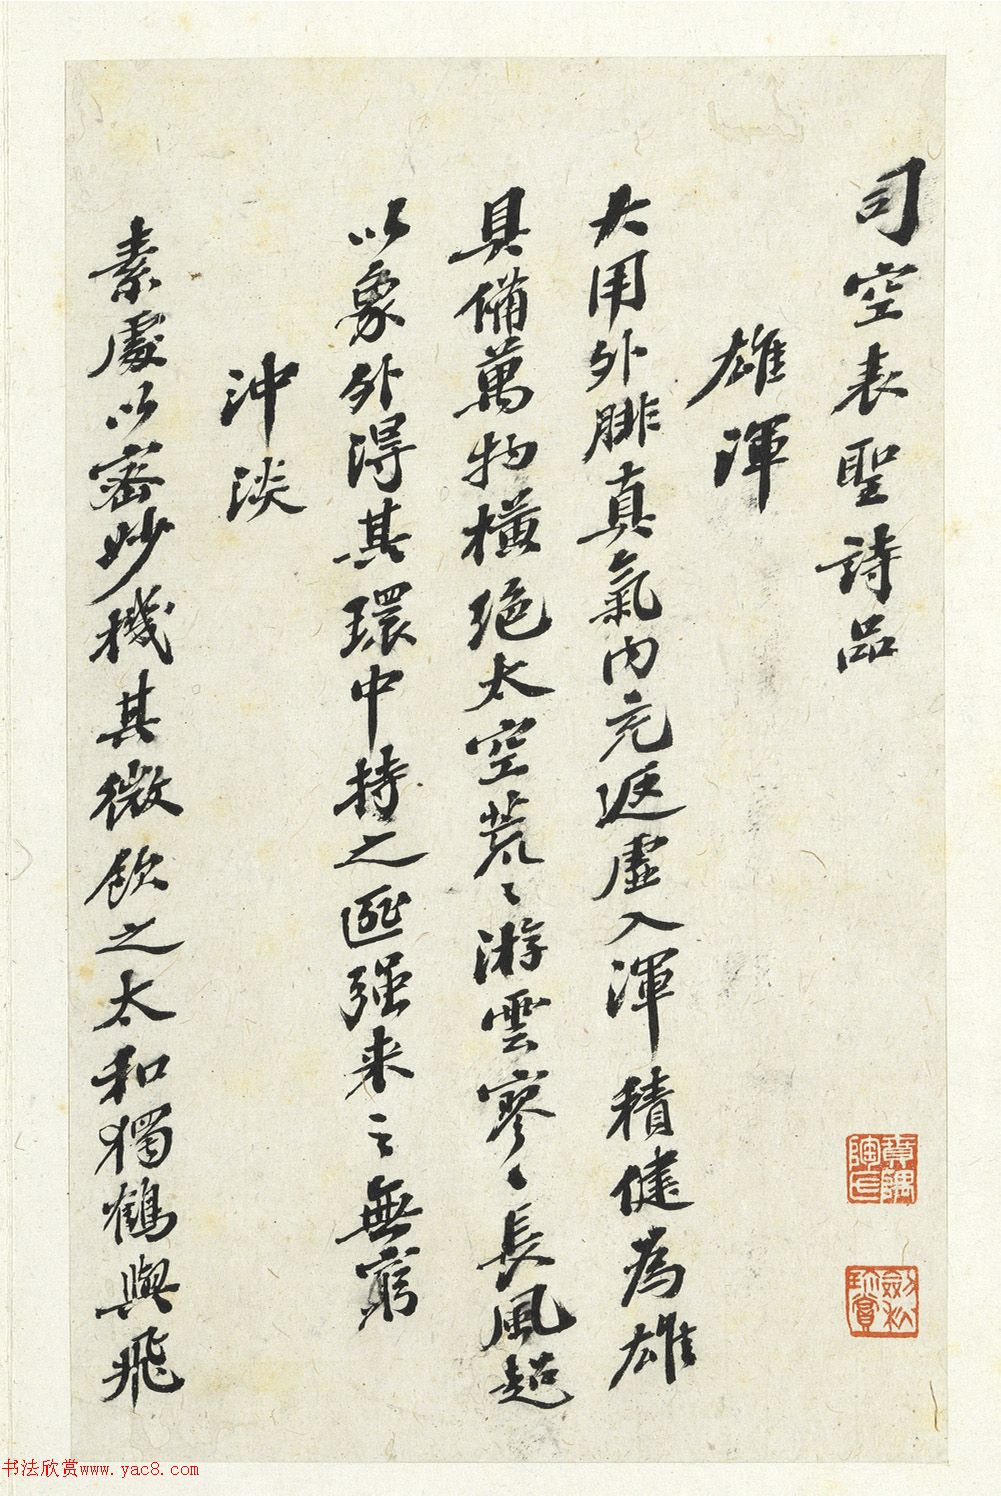 司空表聖詩品
雄渾
大用外腓真氣內充返虛入渾積健為雄
具備萬物橫絕太空荒〻游雲寥〻長風超
以象外得其環中持之匪强来之無窮
沖淡
素處以密妙機其微飲之太和獨鶴與飛
书法欣赏www.yac8.com